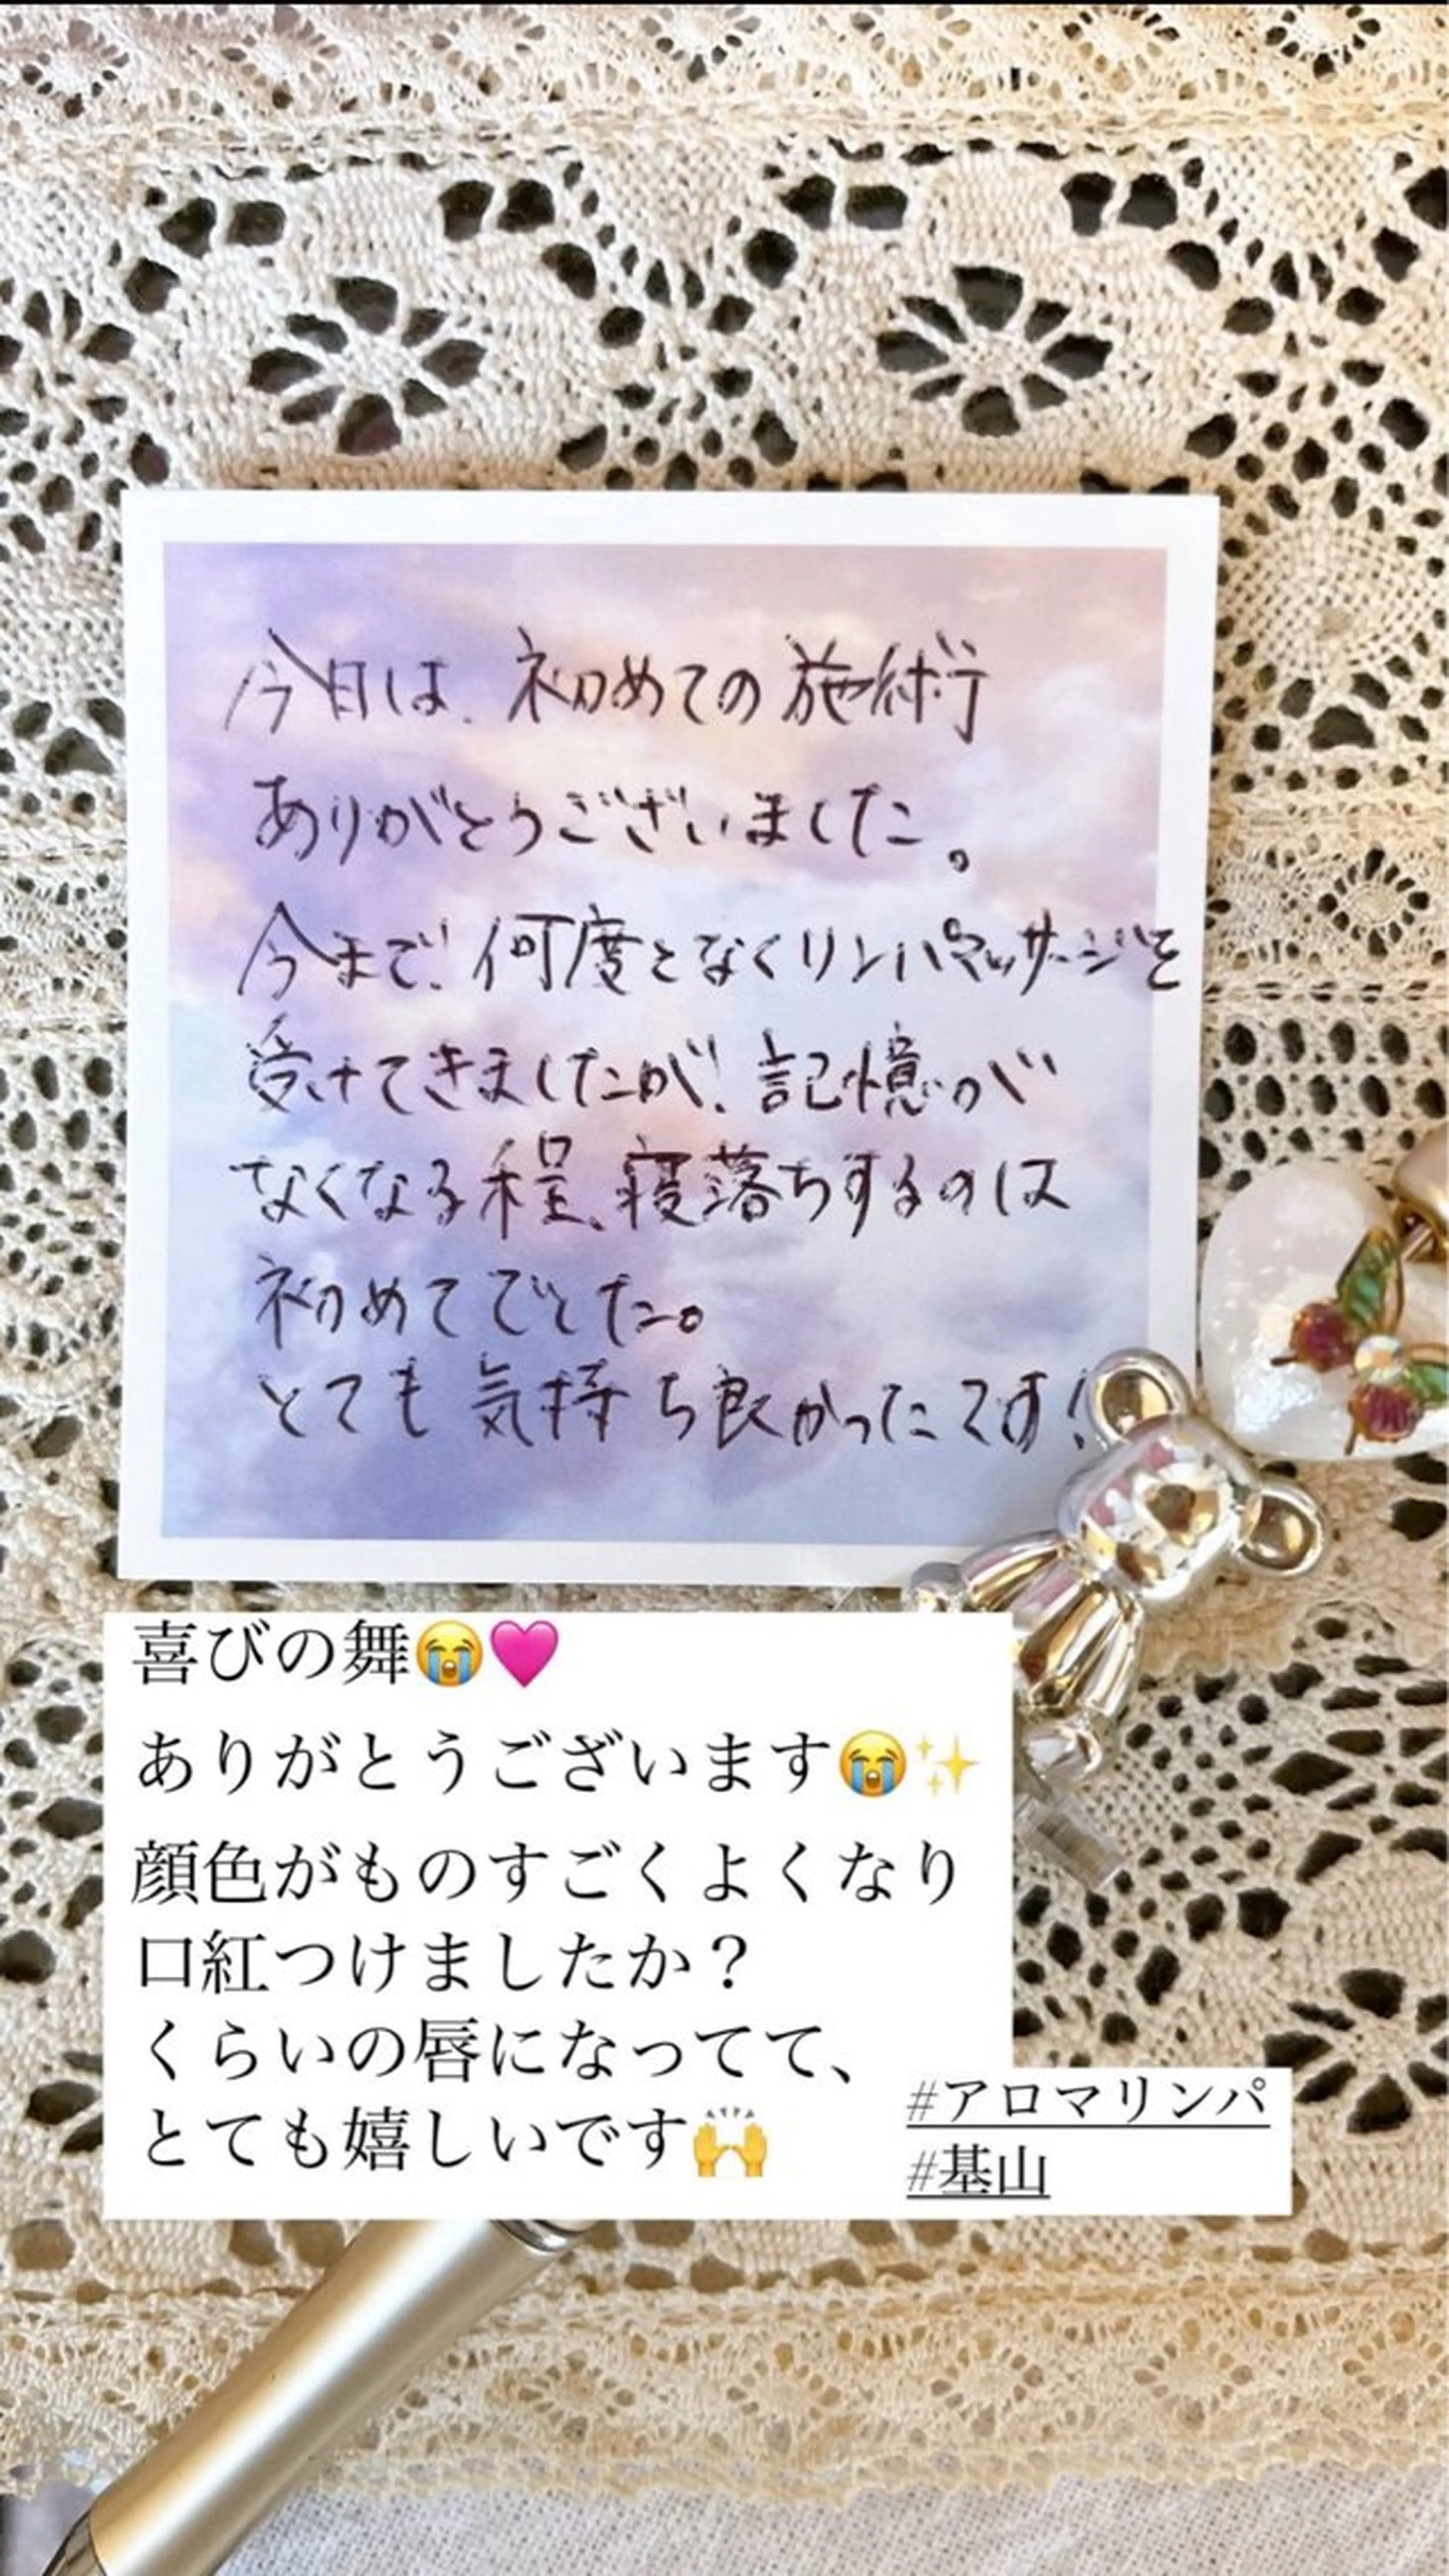 今日は、初めての施術
ありがとうございました。
今まで、何度となくリンパマッサージを
受けてきましたが、記憶が
なくなる程、寝落ちするのは
初めてでした。
とても気持ち良かったです!
喜びの舞😭💗
ありがとうございます😭✨
顔色がものすごくよくなり
口紅つけましたか？
くらいの唇になってて、
とても嬉しいです🙌
#アロマリンパ
#基山